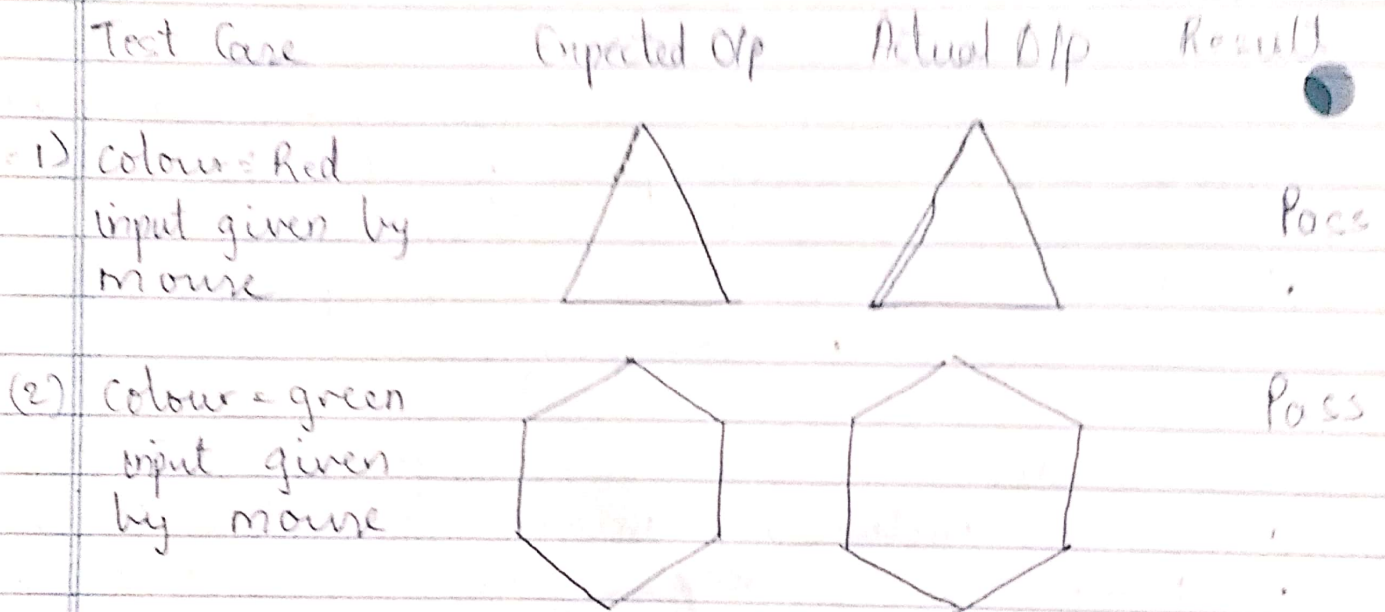 Test Case Expected O/p Actual O/p Result
1) colour = Red
input given by Pass
mouse
(2) colour = green Pass
input given
by mouse